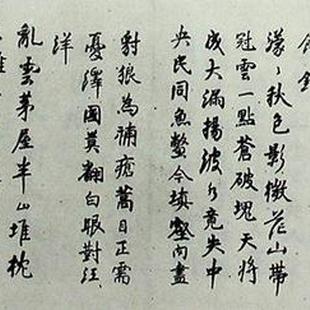 濛〻秋色影微茫山帶
冠雲一點蒼破塊天將
成大漏揚波水竟失中
央民同魚鱉今填壑肉盡
豺狼為補瘡蒿目正需
憂澤國莫翻白眼對汪
洋
亂雲茅屋半山堆枕